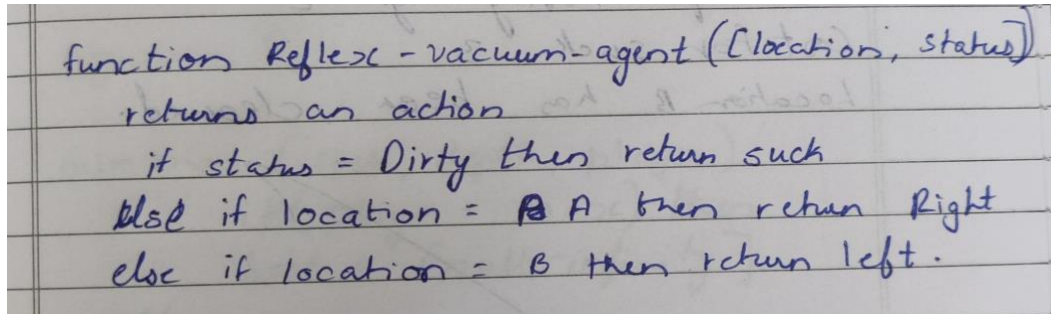 function Reflex-vacuum-agent ([location, status])
returns an action
if status = Dirty then return such
else if location = A then return Right
else if location = B then return left.